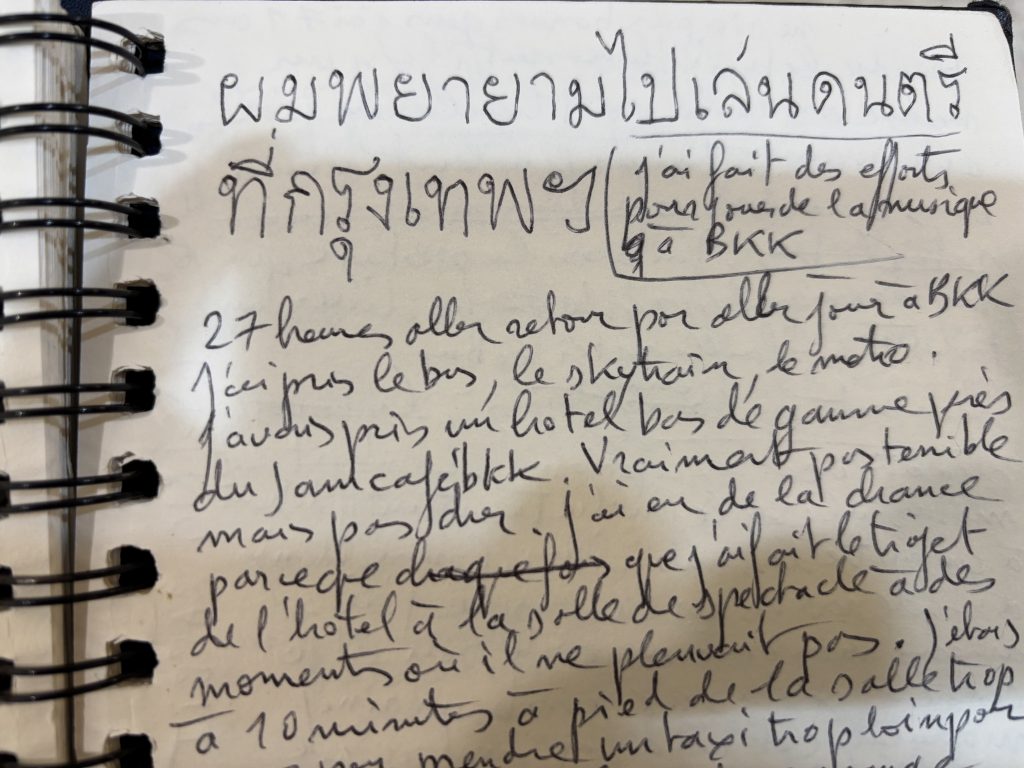 ผมพยายามไปเล่นดนตรี
ที่กรุงเทพฯ
j'ai fait des efforts
pour jouer de la musique
à BKK
27 heures aller retour por aller jouer à BKK
J'ai pris le bus, le skytrain, le metro.
J'avais pris un hotel bas de gamme près
du Jam café bkk. Vraiment pas terrible
mais pas cher. J'ai eu de la chance
parceque chaque fois que j'ai fait le trajet
de l'hôtel à la salle de spectacle à des
moments où il ne pleuvait pas. J'étais
à 10 minutes à pied de la salle trop
prendre un taxi trop loin por